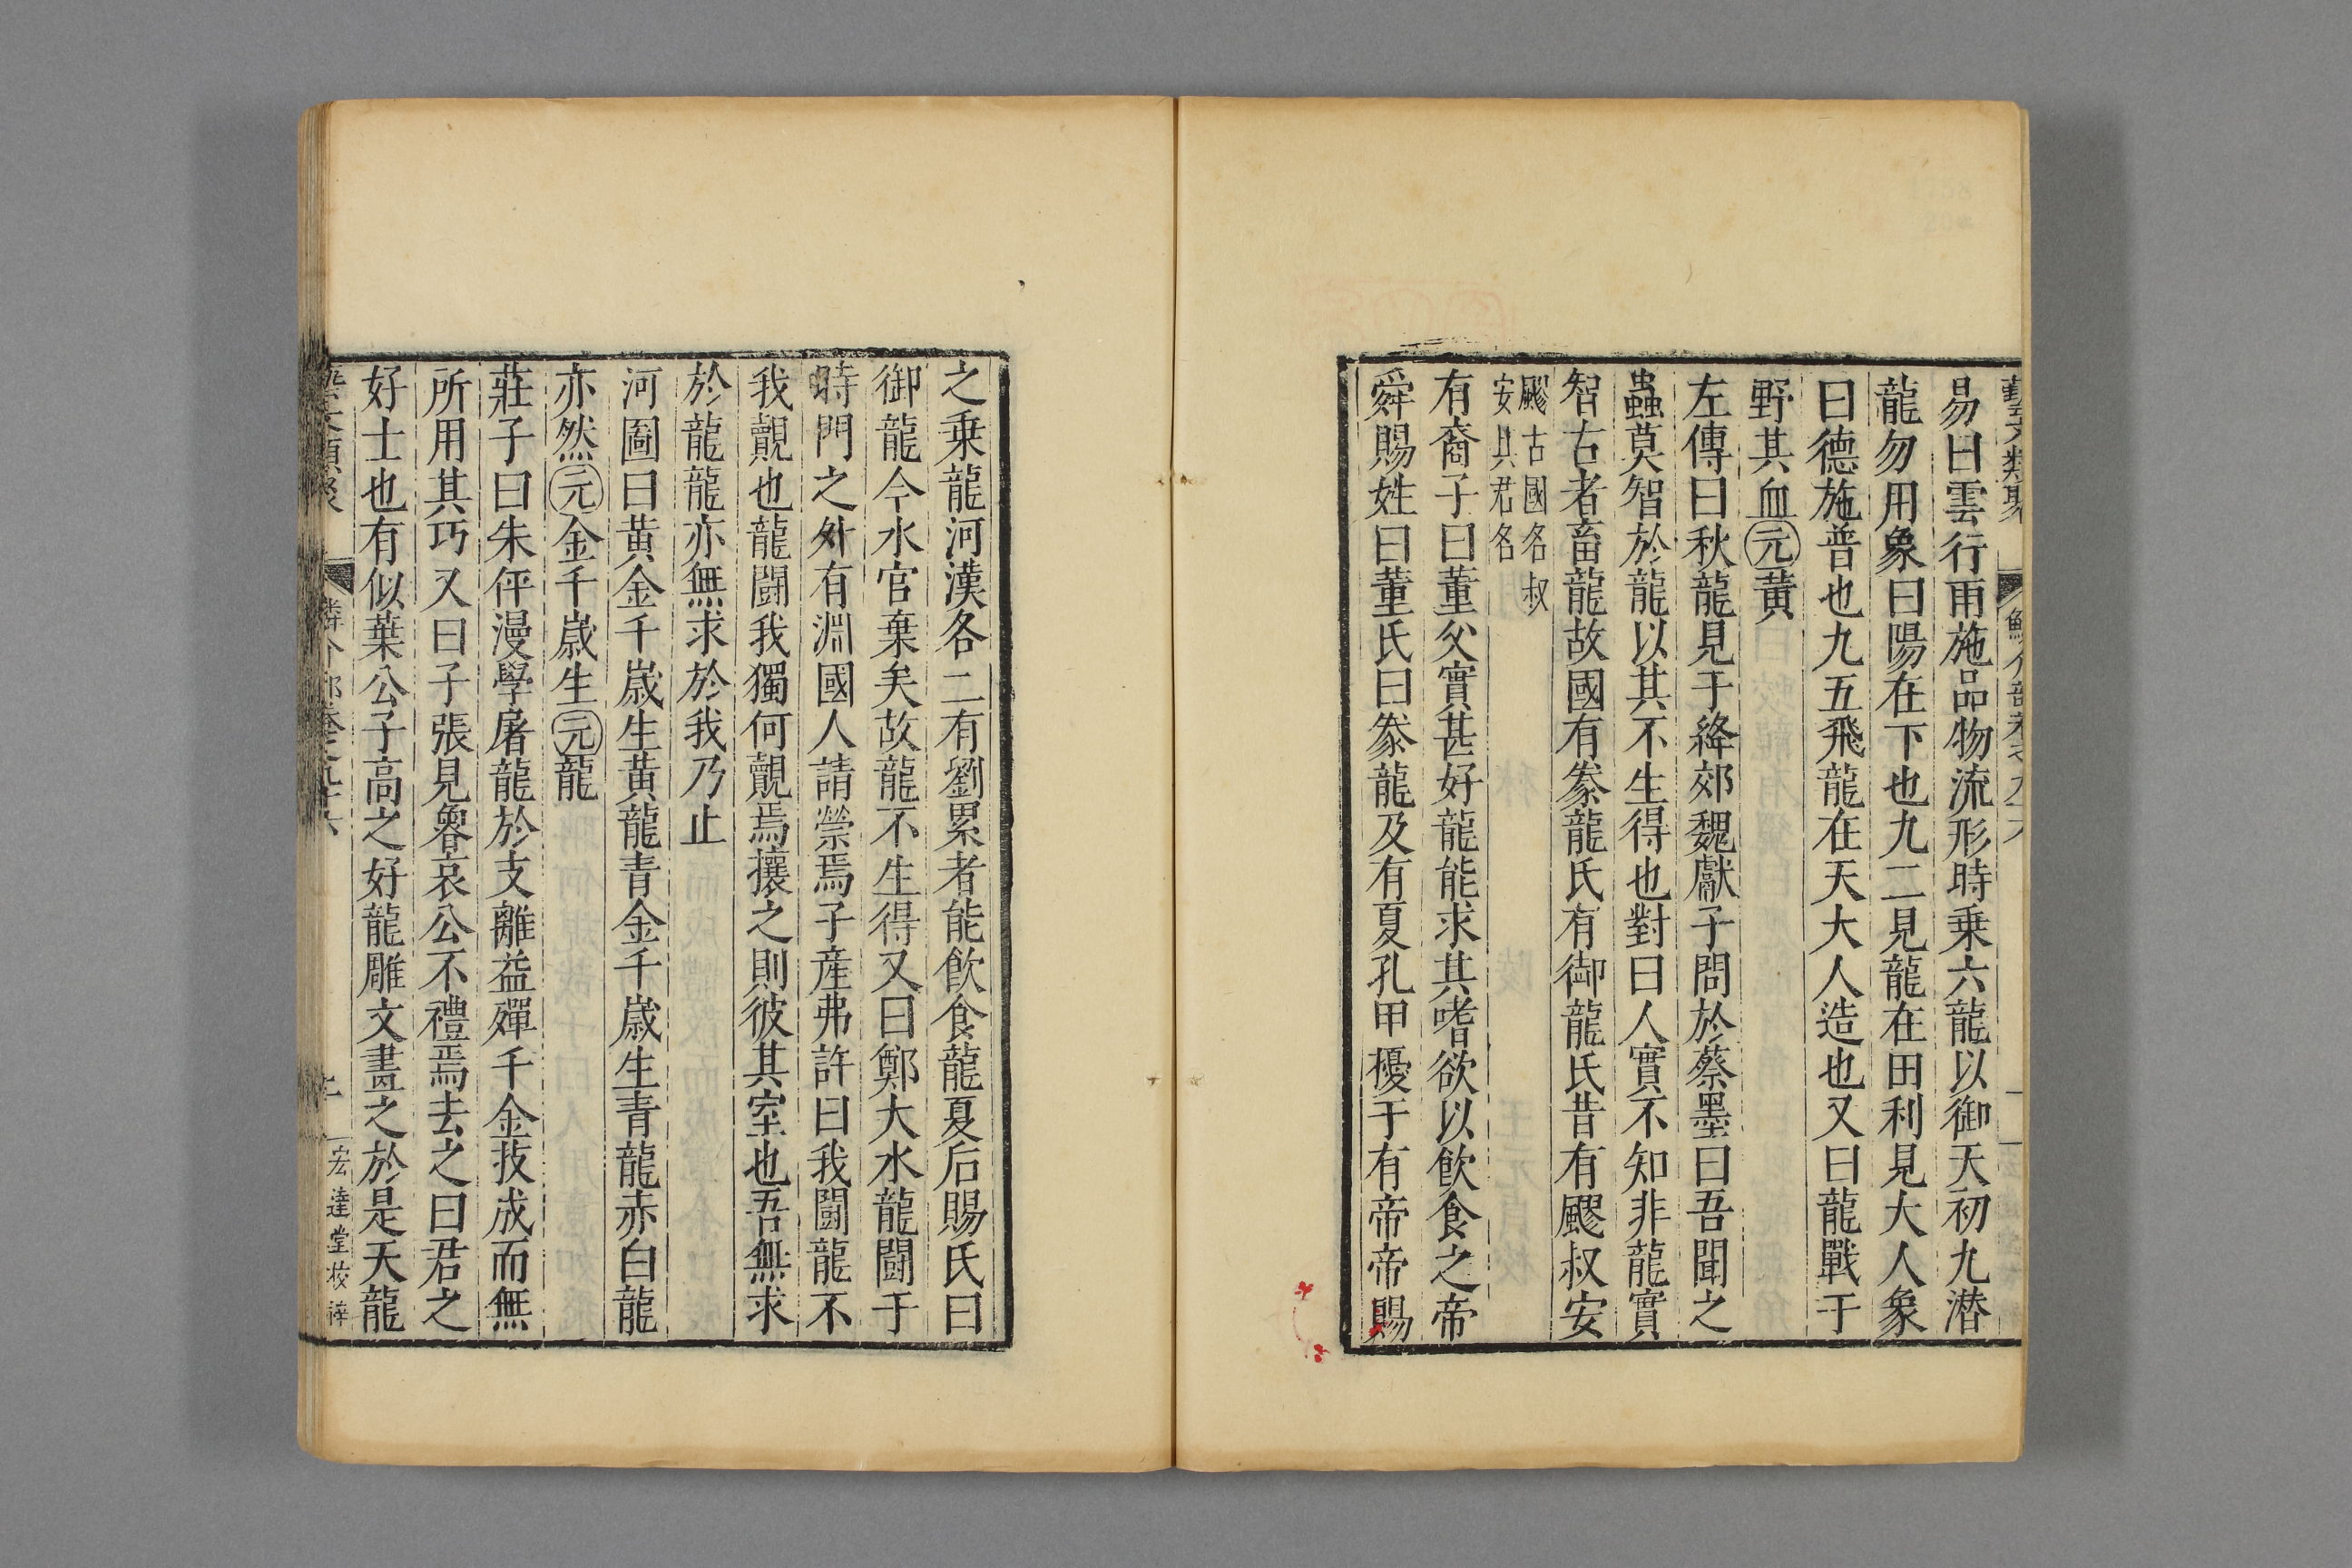 藝文類聚 鱗介部卷之九十六 一
易曰雲行雨施品物流形時乗六龍以御天初九潛
龍勿用象曰陽在下也九二見龍在田利見大人象
曰德施普也九五飛龍在天大人造也又曰龍戰于
野其血元黃
左傳曰秋龍見于絳郊魏獻子問於蔡墨曰吾聞之
蟲莫智於龍以其不生得也對曰人實不知非龍實
智古者畜龍故國有豢龍氏有御龍氏昔有飂叔安
飂古國名叔
安其君名
有裔子曰董父實甚好龍能求其嗜欲以飲食之帝
舜賜姓曰董氏曰豢龍及有夏孔甲擾于有帝帝賜
之乗龍河漢各二有劉累者能飲食龍夏后賜氏曰
御龍今水官棄矣故龍不生得又曰鄭大水龍鬭于
時門之外有淵國人請禜焉子産弗許曰我鬭龍不
我覿也龍鬭我獨何覿焉攘之則彼其室也吾無求
於龍龍亦無求於我乃止
河圖曰黃金千歲生黃龍青金千歲生青龍赤白龍
亦然元金千歲生元龍
莊子曰朱伻漫學屠龍於支離益殫千金技成而無
所用其巧又曰子張見魯哀公不禮焉去之曰君之
好士也有似葉公子高之好龍雕文畫之於是天龍
藝文類聚 鱗介部卷之九十六 二 宏達堂校梓